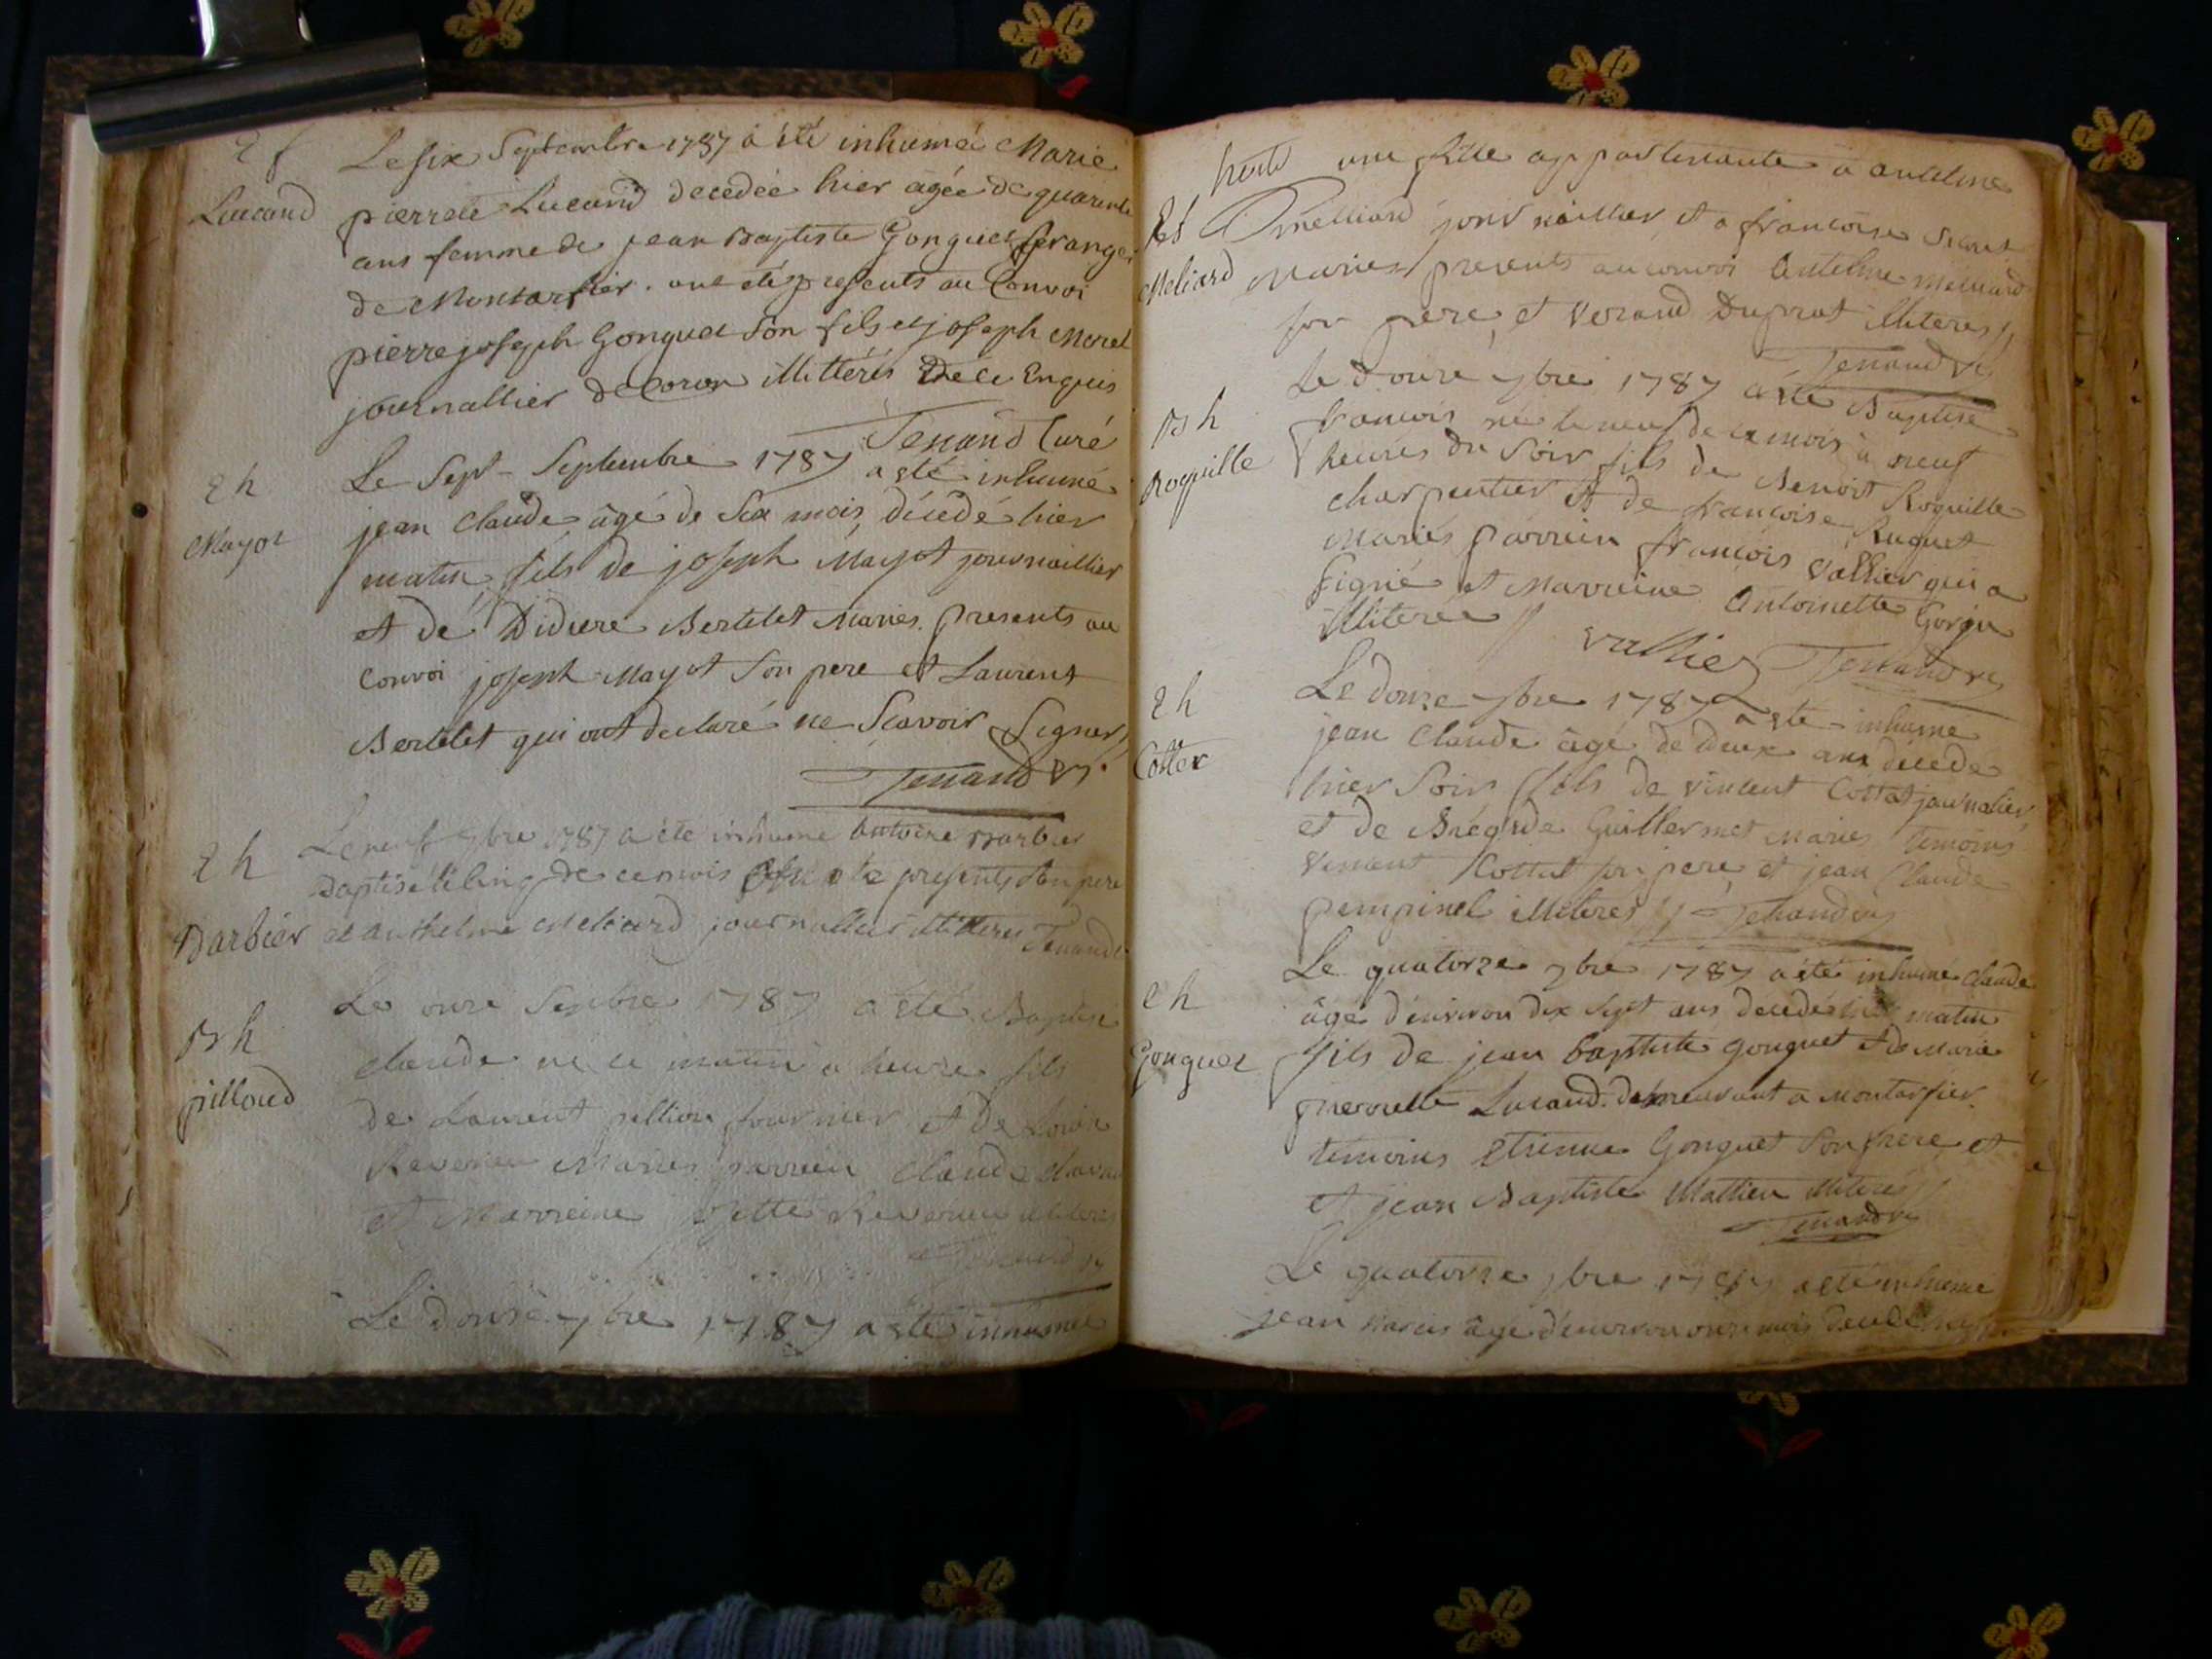 Lucand
Le six Septembre 1787 a été inhumée Marie
pierrete Lucand decedée hier âgée de quarente
ans femme de jean Baptiste Gonguet granger
de Montarfier. ont été presents au Convoi
pierre joseph Gonguet Son fils et joseph Morel
journallier de Coron illittérés De ce Enquis
Tenand Curé
2 h
Mayot
Le Sept Septembre 1787 a eté inhumé
jean Claude âgé de Six mois décédé hier
matin fils de joseph Mayot journaillier
et de Didiere Bertelet Mariés. presents au
Convoi joseph Mayot Son pere et Laurent
Bertelet qui ont declaré ne Scavoir Signer
Tenand
2 h
Barbier
Le neuf 7bre 1787 a été inhumé Antoine Barbier
Baptisé le cinq de ce mois presents Son pere
et Anthelme Meliard journallier illitteres Tenand
B h
pilloud
Le onze Sepbre 1787 a eté Baptisé
Claude né ce matin a heure fils
de Laurent fournier et de
Mariés parrein Claude
et Marreine
Le douze 7bre 1787 a eté inhumée
une fille appartenante a antelme
Meliard
melliard journaillier et a francoise Secret
Mariés presents au convoi Antelme melliard
son pere et Verand Duprat illiteres
Tenand
B h
Roquille
Le douze 7bre 1787 a eté Baptisé
francois né le neuf de ce mois à neuf
heures du Soir fils de Benoit Roquille
charpentier et de francoise Ruquet
Mariés parrein francois Vallier qui a
Signé et Marreine Antoinette Gorju
illiteree
Vallier Tenand
2 h
Cottet
Le douze 7bre 1787 a eté inhumé
jean Claude âgé de deux ans décédé
hier Soir fils de vincent Cottat journalier
et de Guillermet Mariés temoins
vincent Cottat son pere et jean Claude
pempinel illiteres Tenand
2 h
Gonguet
Le quatorze 7bre 1787 a été inhumé Claude
âgé d'environ dix Sept ans decedé matin
fils de jean baptiste gonguet et de Marie
pierrette Lucand. demeurant a Montarfier.
temoins Etienne Gonguet Son frere et
et jean Baptiste Mathieu illiterés
Tenand
Le quatorze 7bre 1787 a eté inhumé
jean âgé d'environ onze mois